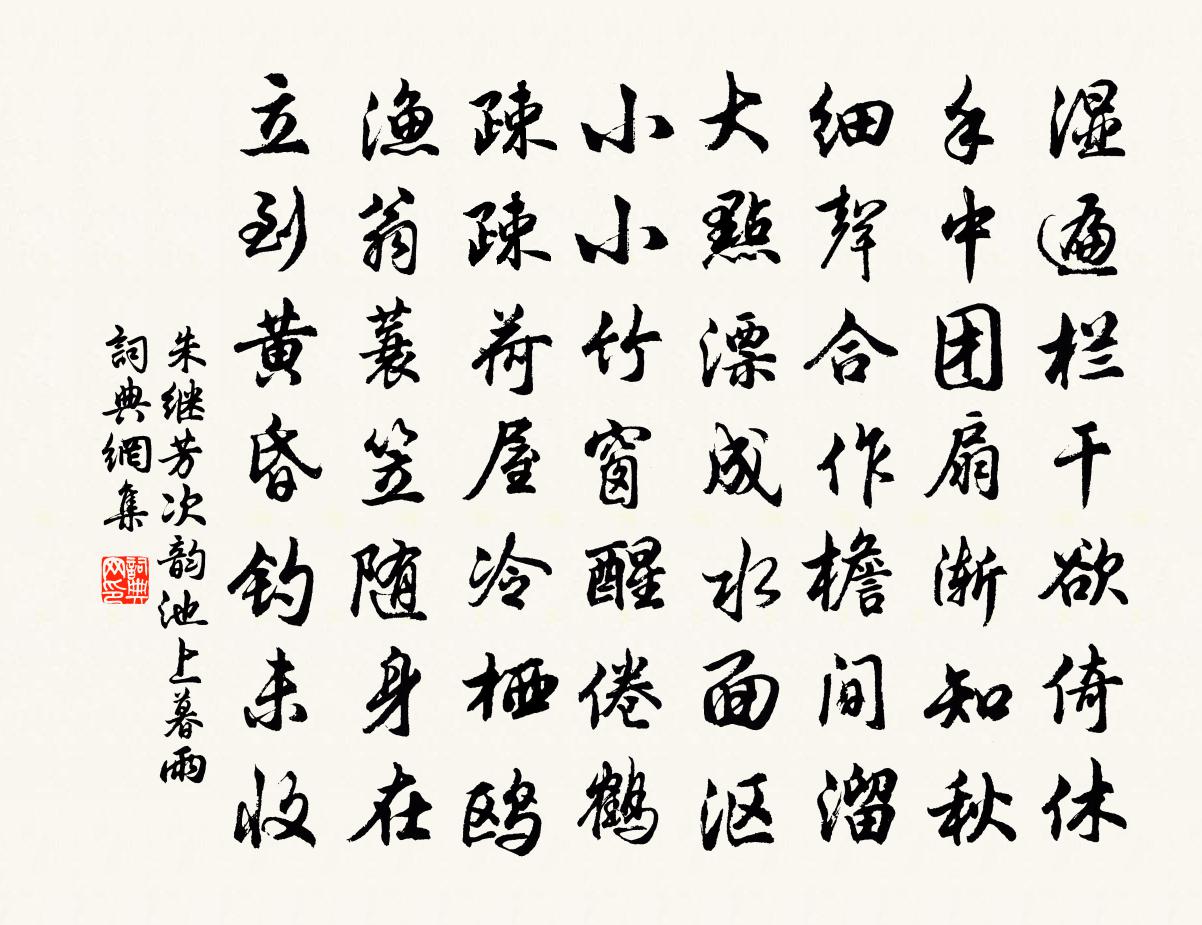 湿遍栏干欲倚休
手中团扇渐知秋
细聲合作檐间溜
大點漂成水面沤
小小竹窗醒倦鹤
疎疎荷屋冷栖鸥
渔翁蓑笠随身在
立到黄昏钓未收
朱继芳次韵池上暮雨
詞典網集
詞典
网印